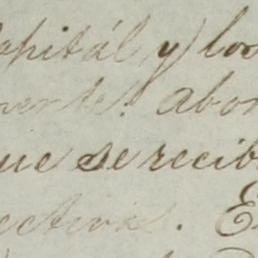 capitál, y los
mente. abon
que se recib
ectiva. E